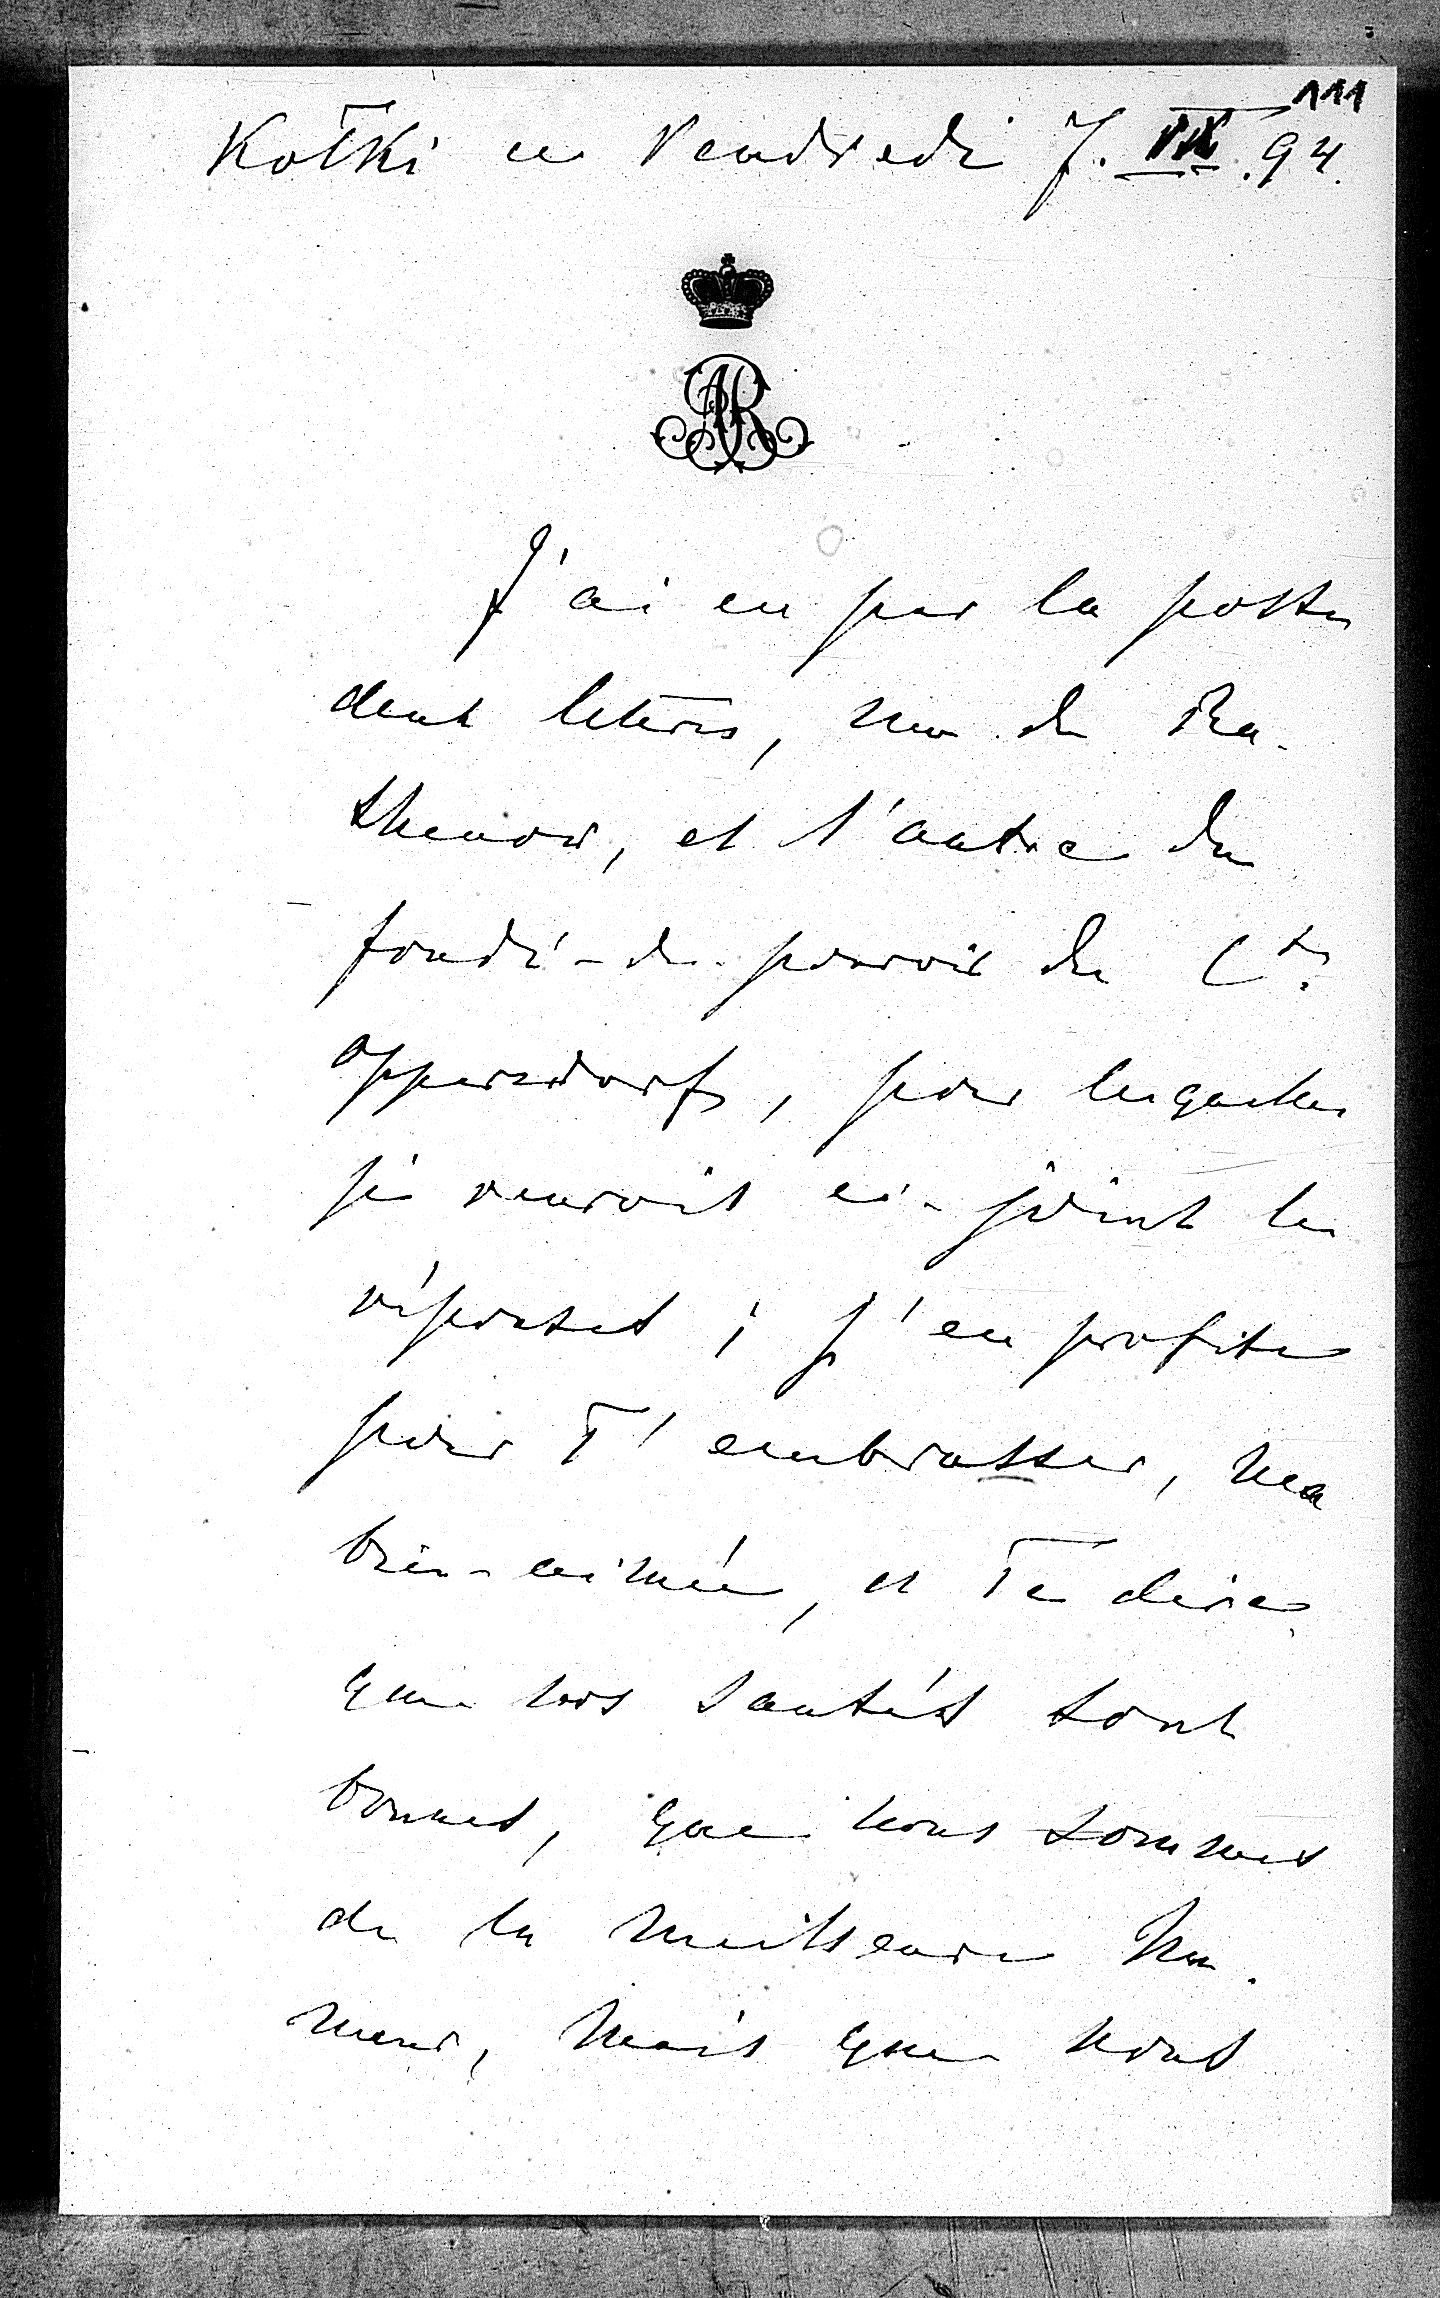 111
Kotki ce Vendredi 7. IX. 94.
AR
J'ai eu par la poste
deux lettres, une de Ra-
thenow, et l'autre du
fondé-de-pouvoir du Cte
Oppersdorff, pour lesquelles
je renvois ci-joint les
réponses ; j'en profite
pour T'embrasser, ma
bien-aimée, et Te dire
que nos santés sont
bonnes, que nous sommes
de la meilleure hu-
meur, mais que nous